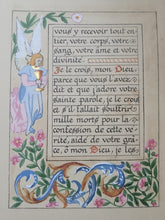 vous y recevoir tout en-
tier, votre corps, votre
sang, votre âme et votre
divinité
Je le crois, mon Dieu,
parce que vous l'avez
dit et que j'adore votre
sainte parole, je le crois
et s'il fallait souffrir
mille morts pour la
confession de cette vé-
rité, aidé de votre grâ-
ce, ô mon Dieu, je les